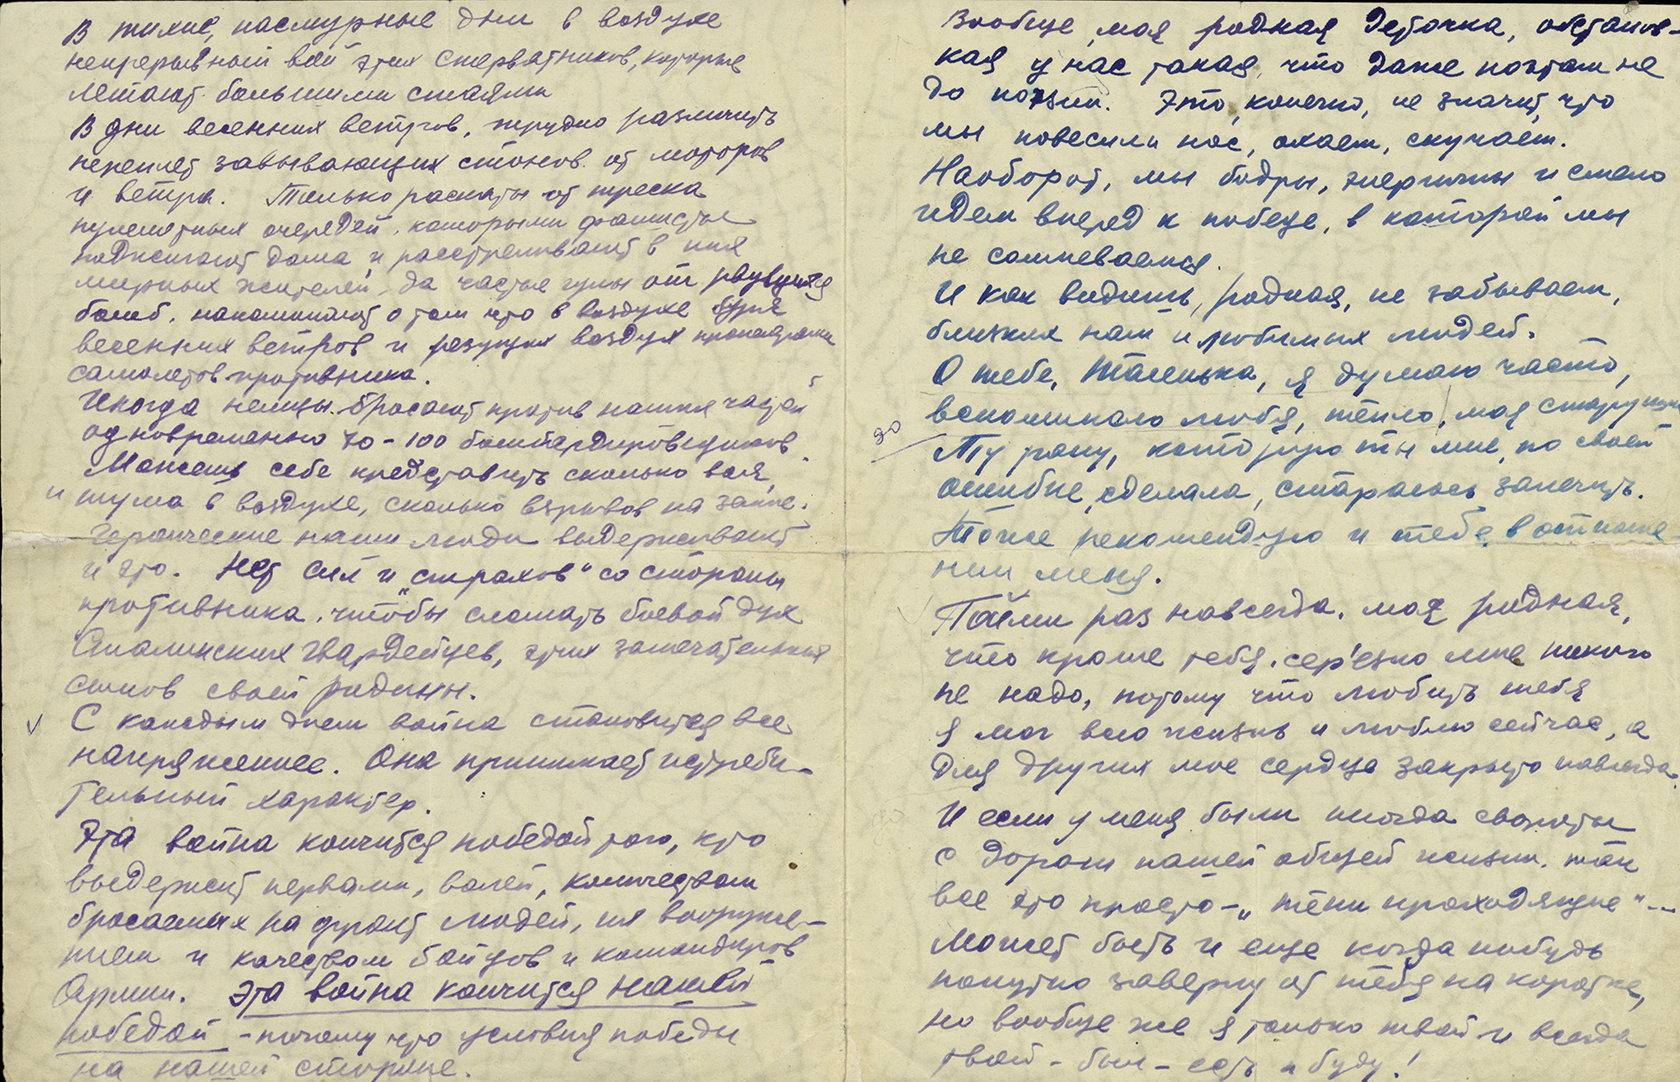 В тихие, пасмурные дни в воздухе
непрерывный вой этих стервятников, которые
летают большими стаями
В дни весенних ветров, трудно различить
переплет завывающих стонов от моторов
и ветра. Только раскаты от треска
пулеметных очередей, которыми фашисты
поджигают дома и расстреливают в них
мирных жителей, да частые гулы от рвущихся
бомб, напоминают о том что в воздухе кроме
весенних ветров и режущих воздух пропеллеры
самолетов противника.
Иногда немцы бросают против наших частей
одновременно 70-100 бомбардировщиков.
Можешь себе представить сколько воя,
и шума в воздухе, сколько взрывов на земле.
Героические наши люди выдерживают
и это. Нет сил и „страхов" со стороны
противника, чтобы сломать боевой дух
Сталинских гвардейцев, этих замечательных
сынов своей родины.
С каждым днем война становится все
напряженнее. Она принимает истреби-
тельный характер.
Эта война кончится победой того, кто
выдержит нервами, волей, количеством
бросаемых на фронт людей, их вооруже-
нием и качеством бойцов и командиров
Армии. Эта война кончится нашей
победой - потому что условия победы
на нашей стороне.
Вообще, моя родная деточка, обстанов-
ка у нас такая, что даже поэтам не
до поэзии. Это, конечно, не значит, что
мы повесили нос, охаем, скучаем.
Наоборот, мы бодры, энергичны и смело
идем вперед к победе, в которой мы
не сомневаемся.
И как видишь, родная, не забываем,
близких нам и любимых людей.
О тебе, Таленька, я думаю часто,
вспоминаю любя, тепло, моя старушка
Ту рану, которую ты мне, по своей
ошибке, сделала, стараюсь залечить.
Тоже рекомендую и тебе в отноше-
нии меня.
Пойми раз навсегда, моя родная,
что кроме тебя, сер'езно мне никого
не надо, потому что любить тебя
я мог всю жизнь и люблю сейчас, а
для других мое сердце закрыто навсегда.
И если у меня были иногда свороты
с дороги нашей общей жизни, так
все это просто - „тени проходящие" --
Может быть и еще когда нибудь
попутно заверну от тебя на коротке,
но вообще же я только твой и всегда
твой - был - есть и буду!